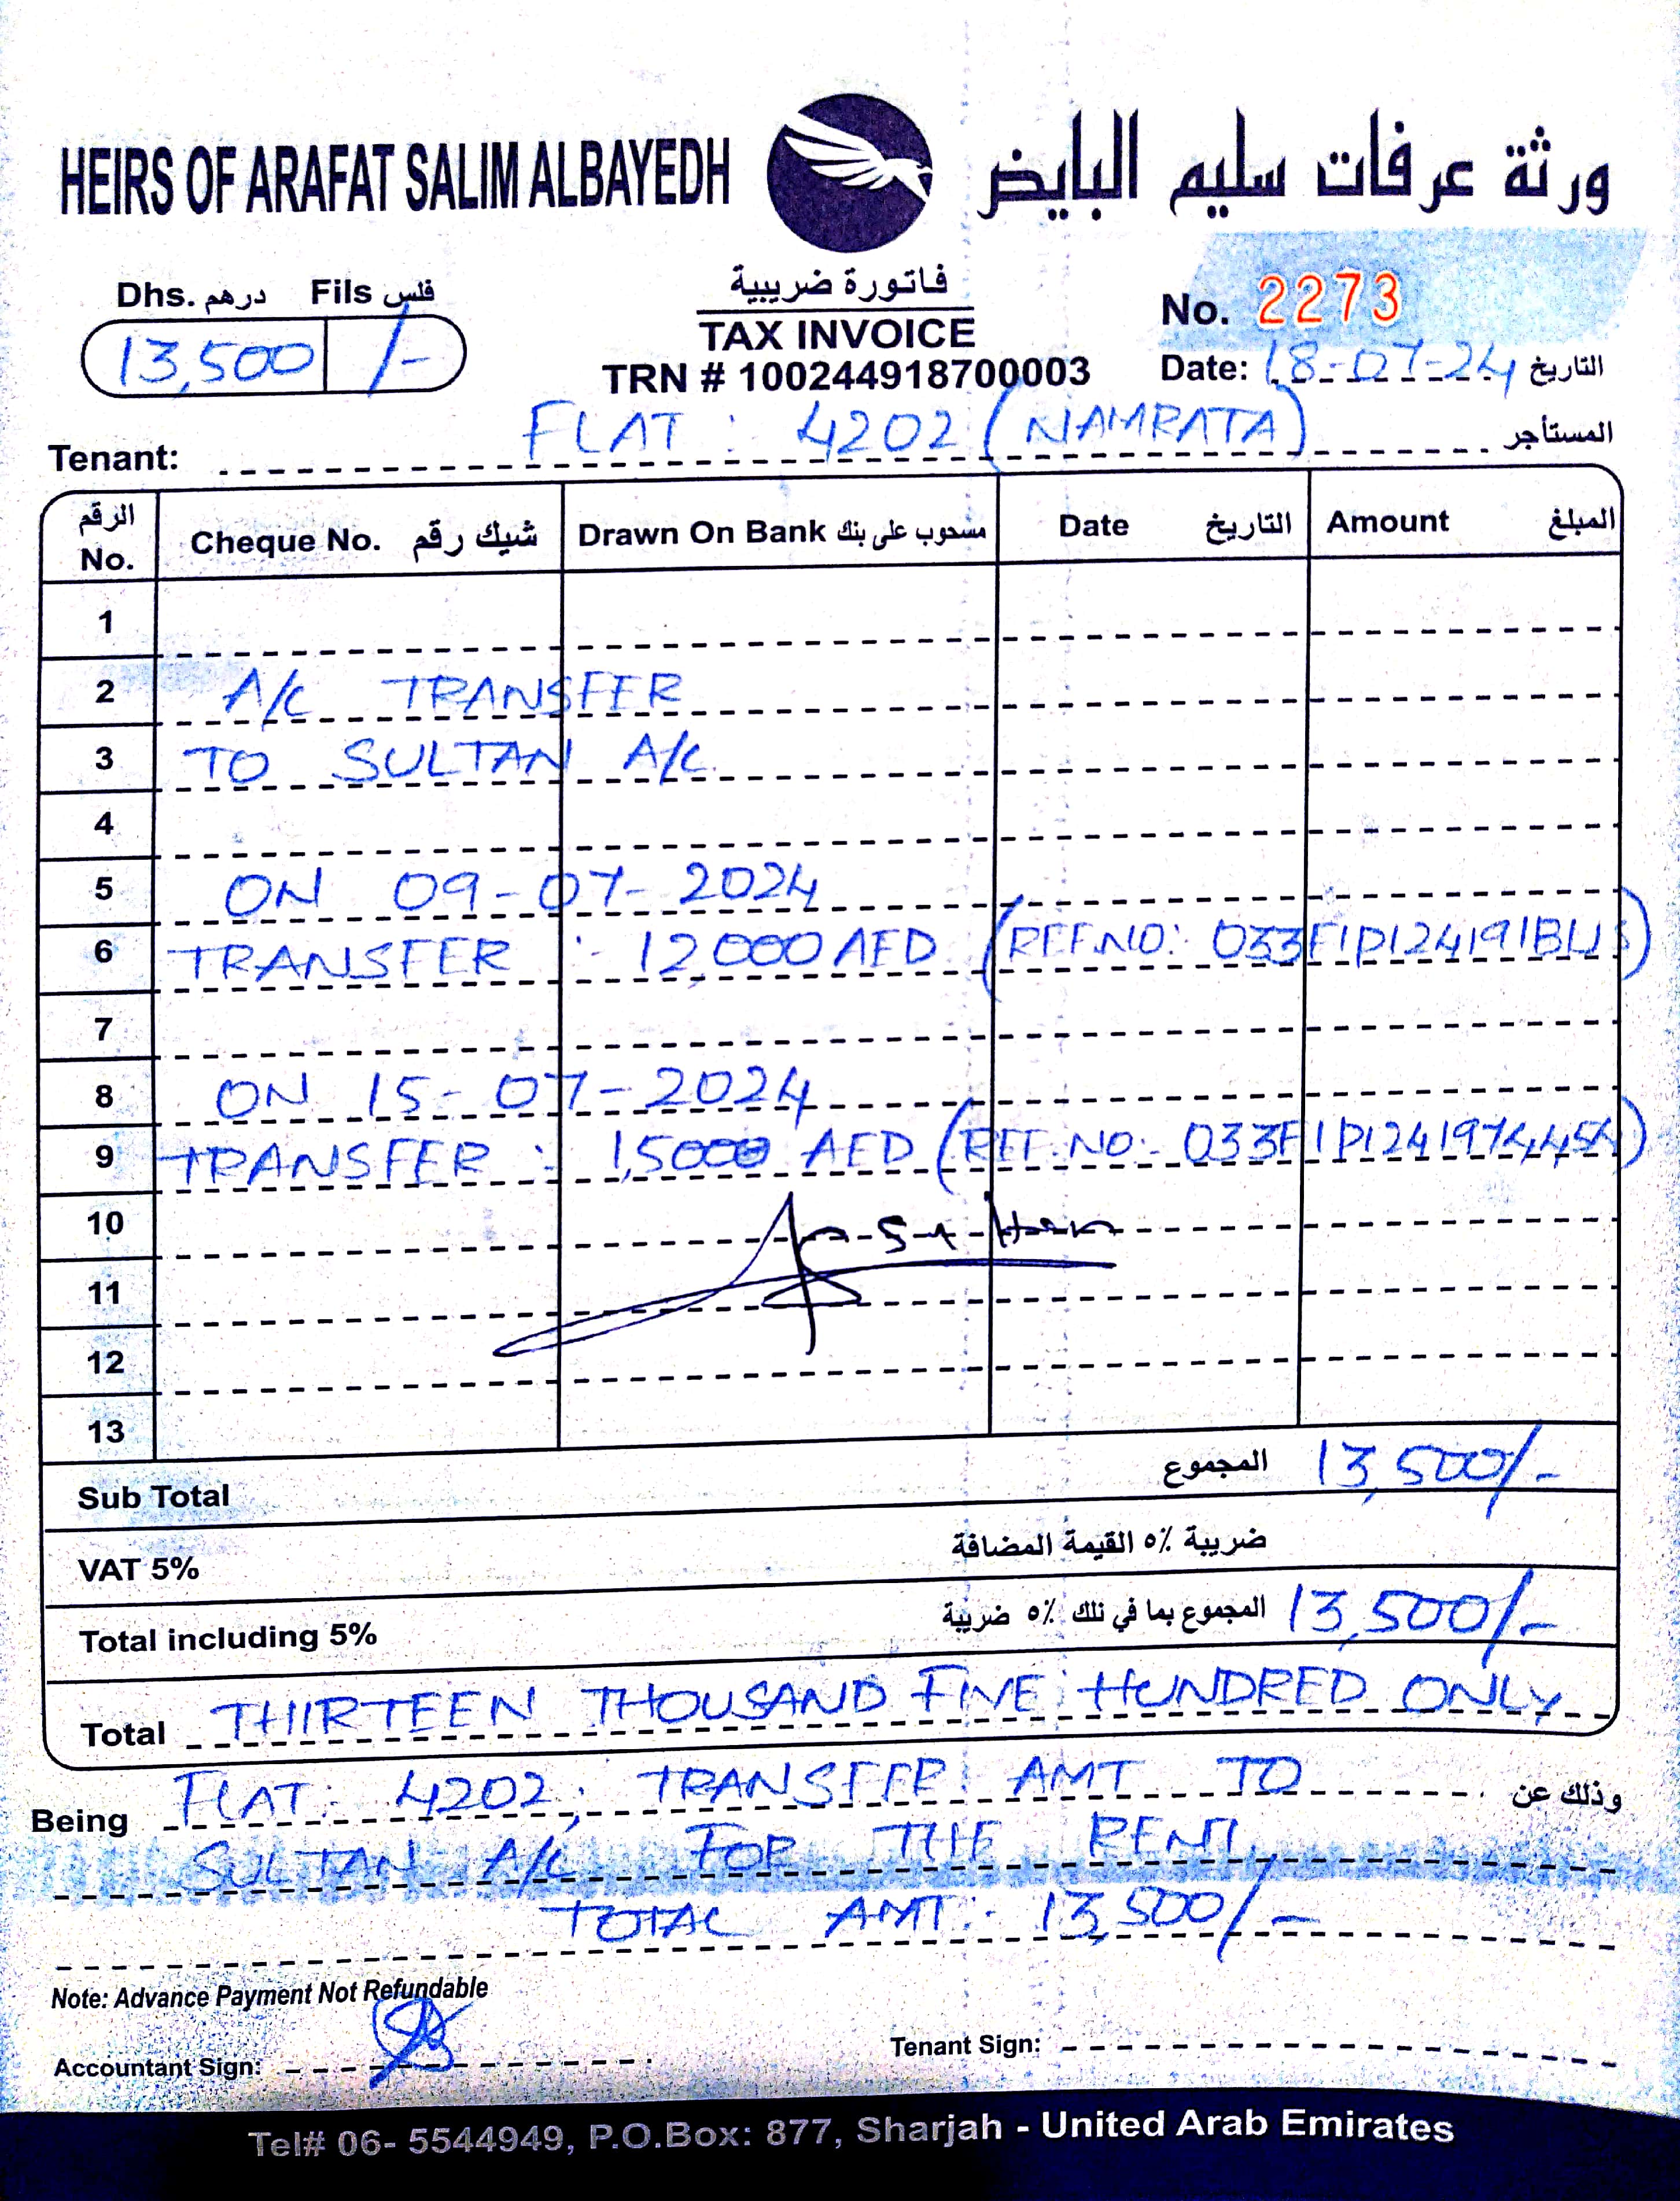 HEIRS OF ARAFAT SALIM ALBAYEDH ورثة عرفات سليم البايض
Dhs. درهم Fils فلس
13,500 /-
فاتورة ضريبية
TAX INVOICE
TRN # 100244918700003
No. 2273
Date: 18-07-24 التاريخ
Tenant: FLAT : 4202 (NAMRATA) المستأجر
الرقم No. Cheque No. شيك رقم Drawn On Bank مسحوب على بنك Date التاريخ Amount المبلغ
1
2 A/C TRANSFER
3 TO SULTAN A/C
4
5 ON 09-07-2024
6 TRANSFER : 12,000 AED (REF.NO:
7
8 ON 15-07-2024
9 TRANSFER : AED (REF.NO:
10
11
12
13
Sub Total المجموع 13,500/-
VAT 5% ضريبة ٥٪ القيمة المضافة
Total including 5% المجموع بما في ذلك ٥٪ ضريبة 13,500/-
Total THIRTEEN THOUSAND FIVE HUNDRED ONLY
Being FLAT: 4202, TRANSFER AMT TO وذلك عن
SULTAN A/C FOR THE RENT,
TOTAL AMT: 13,500/-
Note: Advance Payment Not Refundable
Accountant Sign: Tenant Sign:
Tel# 06- 5544949, P.O.Box: 877, Sharjah - United Arab Emirates